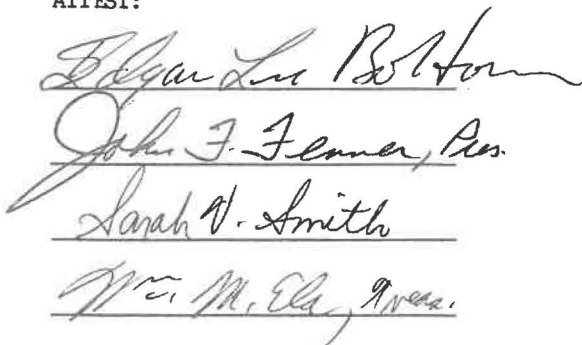 ATTEST:
Edgar Lee Bolton
John F. Fenner, Pres.
Sarah V. Smith
Wm. M. Ela, Treas.